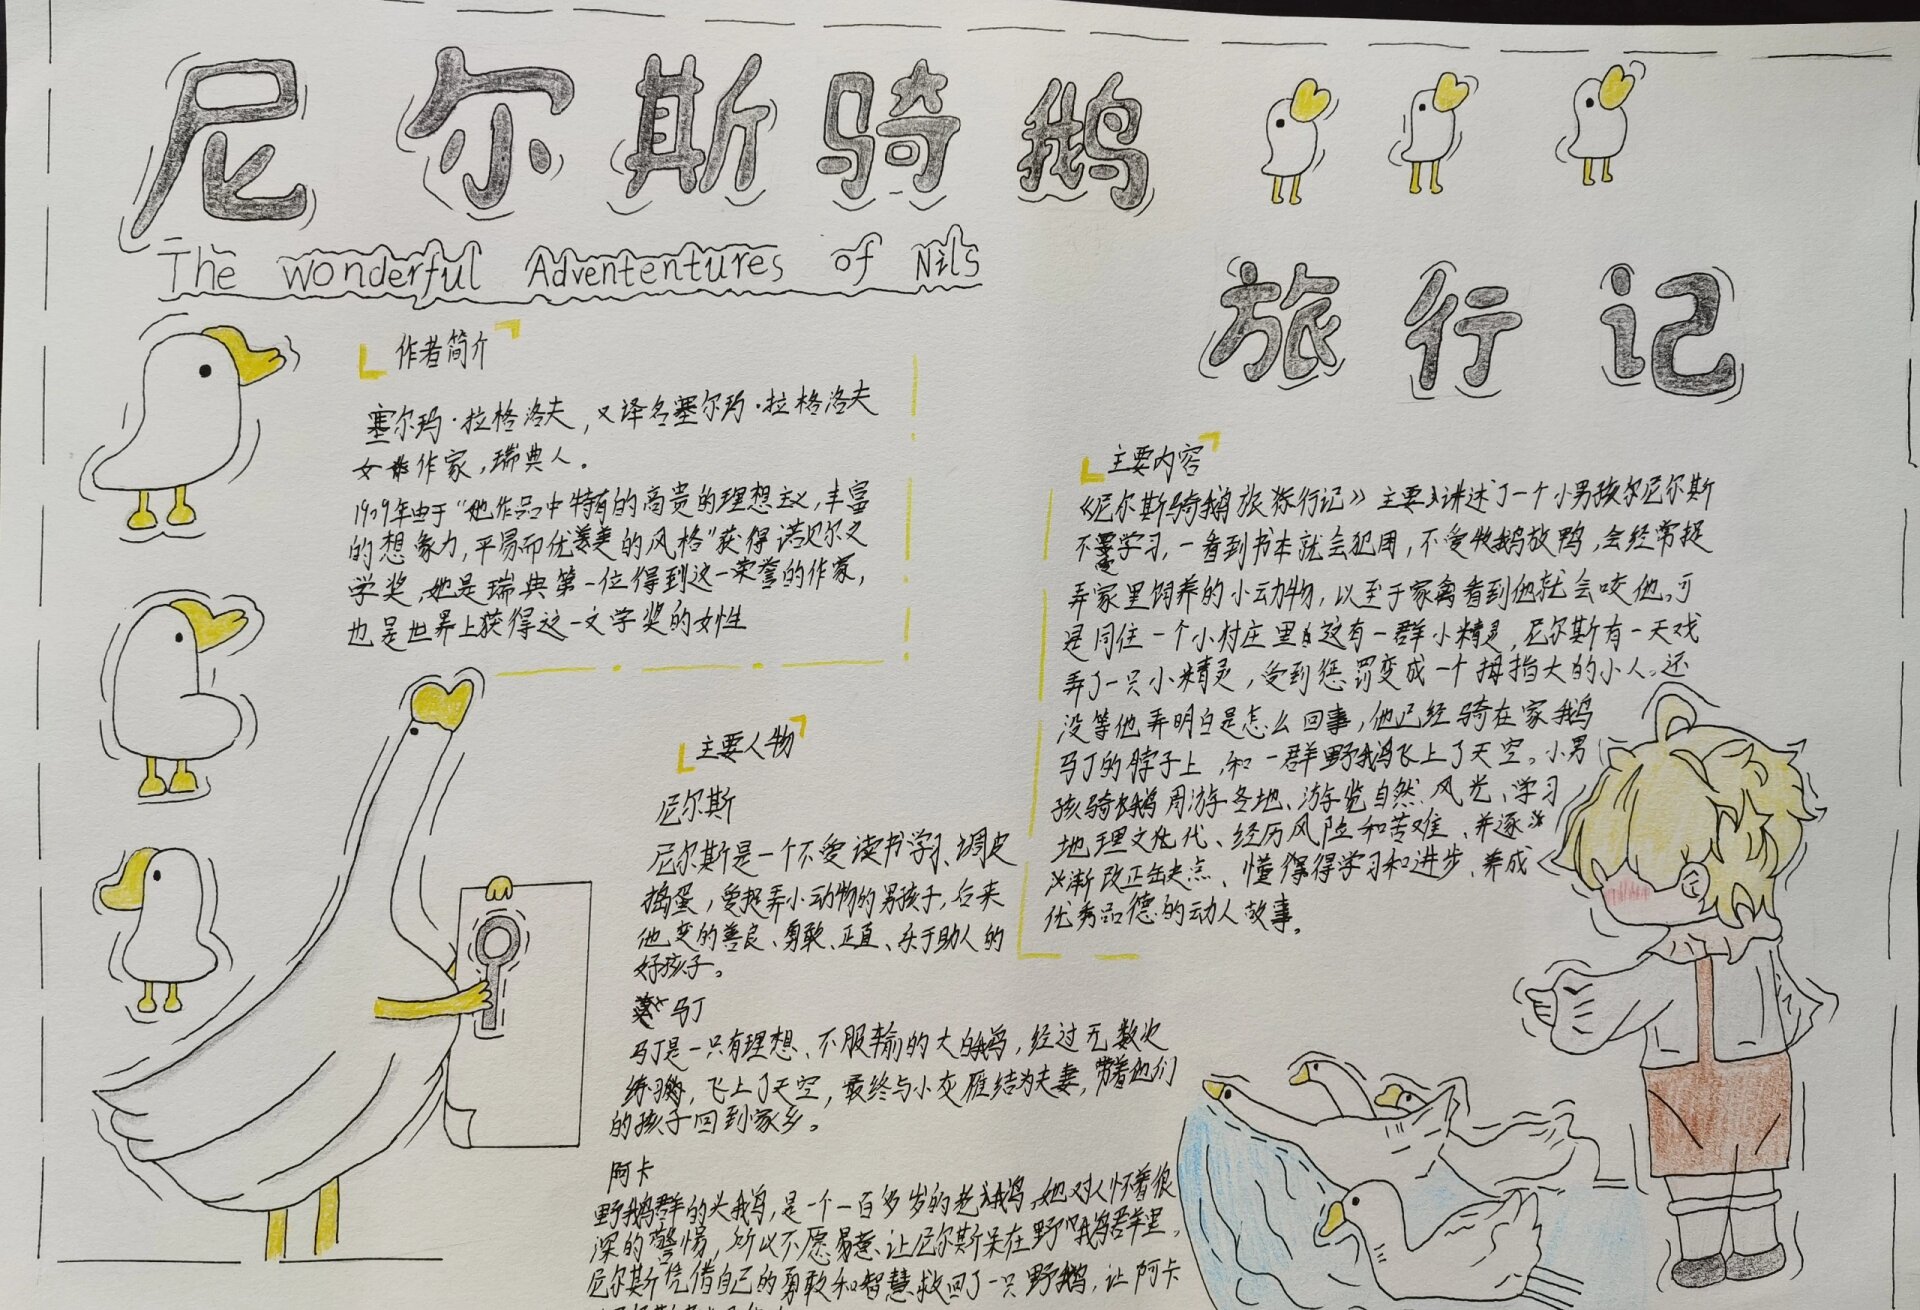 尼尔斯骑鹅
旅行记
The wonderful Advententures of Nils
作者简介
塞尔玛·拉格洛夫，又译名塞尔玛·拉格洛夫
女作家，瑞典人。
1909年由于“她作品中特有的高贵的理想主义，丰富
的想象力，平易而优美的风格”获得诺贝尔文
学奖，她是瑞典第一位得到这一荣誉的作家，
也是世界上获得这一文学奖的女性
主要人物
尼尔斯
尼尔斯是一个不爱读书学习、调皮
捣蛋，爱捉弄小动物的男孩子，后来
他变的善良、勇敢、正直、乐于助人的
好孩子。
马丁
马丁是一只有理想、不服输的大白鹅，经过无数次
练习，飞上了天空，最终与小灰雁结为夫妻，带着他们
的孩子回到家乡。
阿卡
野鹅群的头鹅，是一个一百多岁的老鹅，她对人怀着很
深的警惕，所以不愿意让尼尔斯呆在野鹅群里。
尼尔斯凭借自己的勇敢和智慧救回了一只野鹅，让阿卡
主要内容
《尼尔斯骑鹅旅行记》主要讲述了一个小男孩尔尼尔斯
不爱学习，一看到书本就会犯困，不爱牧鹅放鸭，会经常捉
弄家里饲养的小动物，以至于家禽看到他就会咬他。可
是同住一个小村庄里这有一群小精灵，尼尔斯有一天戏
弄了一只小精灵，受到惩罚变成一个拇指大的小人。还
没等他弄明白是怎么回事，他已经骑在家鹅
马丁的脖子上，和一群野鹅飞上了天空。小男
孩骑鹅周游各地、游览自然风光、学习
地理文化、经历风险和苦难、并逐
渐改正缺点、懂得学习和进步、养成
优秀品德的动人故事。